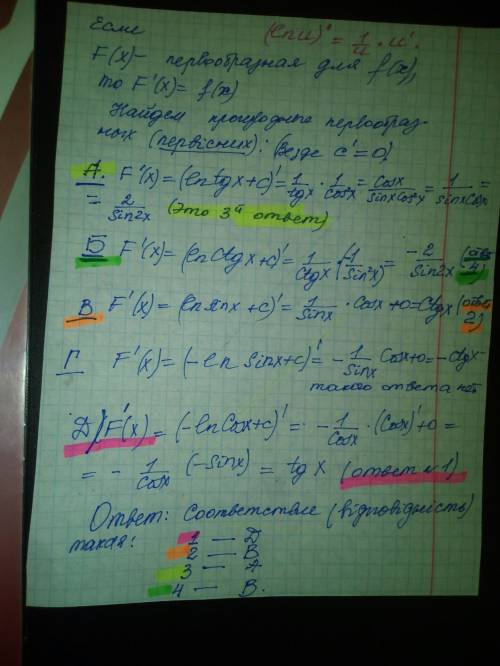 Если
(ln u)' = 1/u · u'.
F(x) – первообразная для f(x),
то F'(x) = f(x)
Найдем производные первообраз-
ных (первісних): (везде c' = 0)
А. F'(x) = (ln tg x + c)' = 1/tgx · 1/cos²x = cosx/sinxcos²x = 1/sinxcosx =
= 2/sin2x (Это 3й ответ)
Б F'(x) = (ln ctgx + c)' = 1/ctgx · (-1/sin²x) = -2/sin2x (отв. 4)
В F'(x) = (ln sinx + c)' = 1/sinx · cosx + 0 = ctgx (ответ 2)
Г F'(x) = (-ln sinx + c)' = - 1/sinx cosx + 0 = -ctgx –
такого ответа нет
Д) F'(x) = (-ln cosx + c)' = - 1/cosx · (cosx)' + 0 =
= - 1/cosx (-sinx) = tg x (ответ №1)
Ответ: Соответствие (відповідність)
такая:
1 — Д
2 — В
3 — А
4 — В.